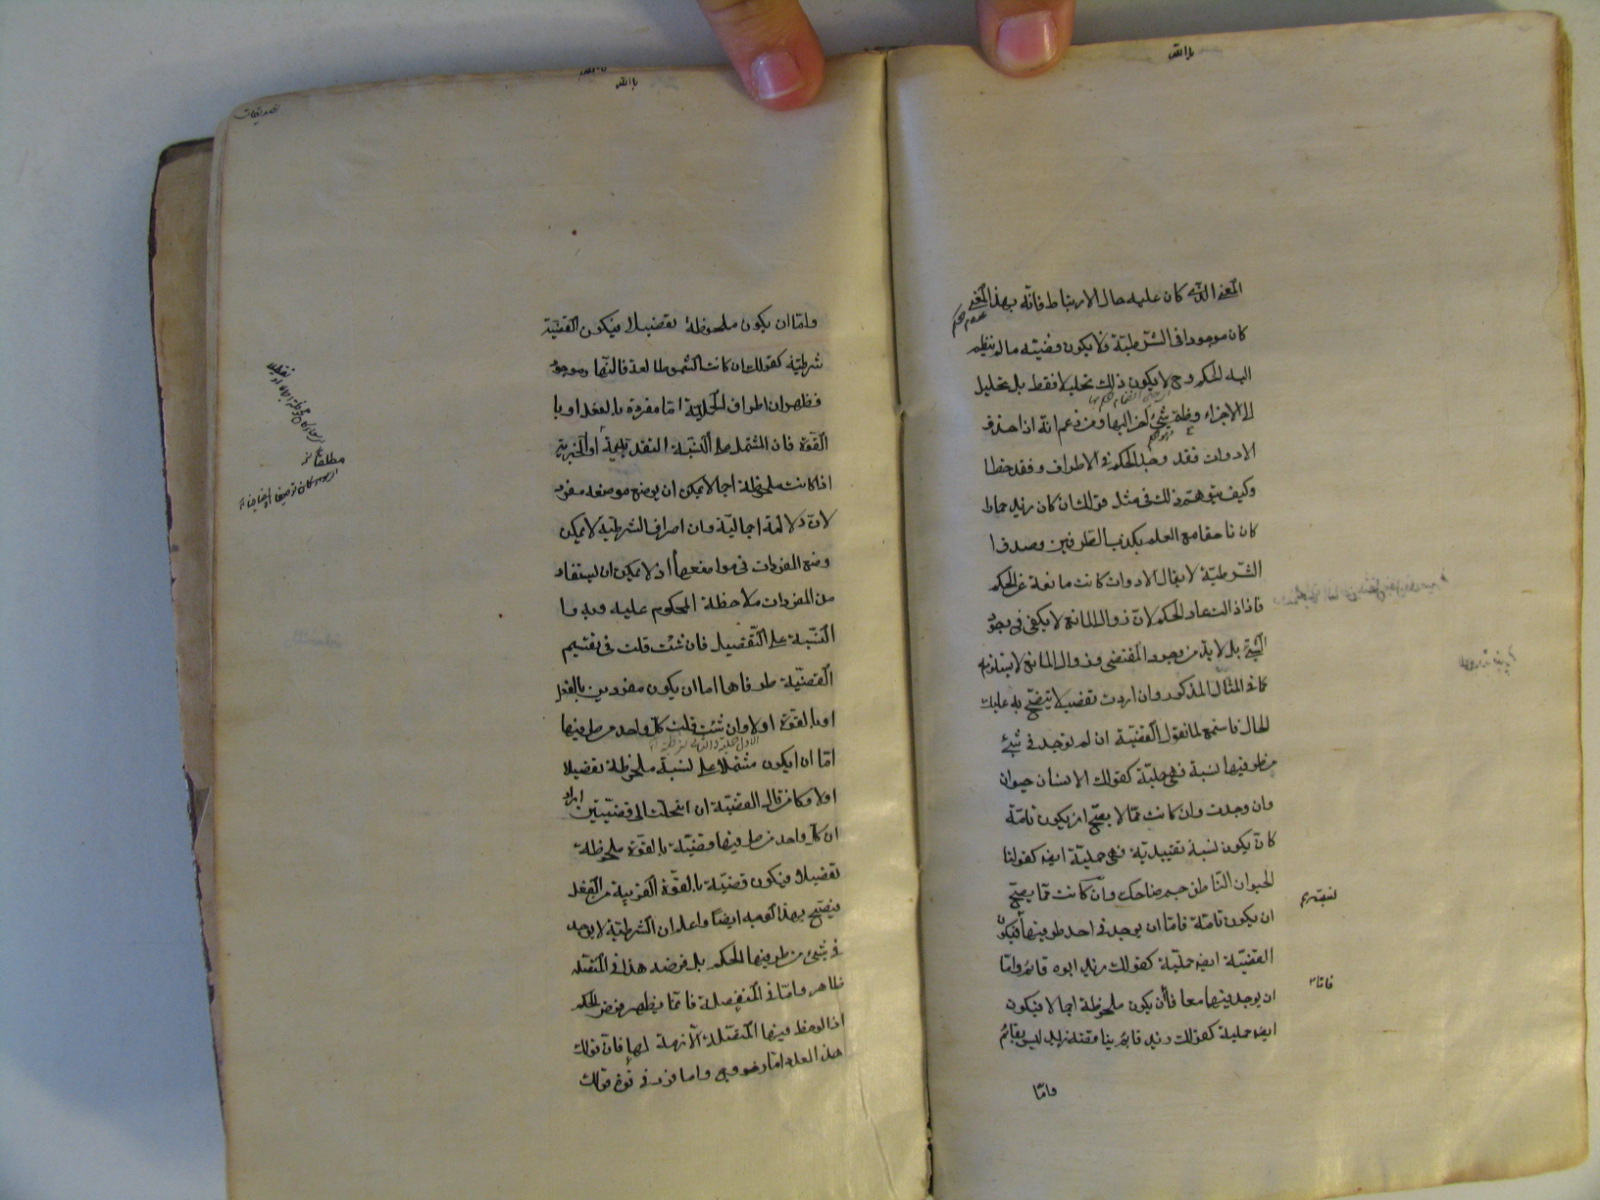 يا الله
المعنى الذي كان عليه حال الارتباط فانه بهذا المعنى
كان موجودا في الشرطية ولا يكون قضيته ما لم ينظم
اليه الحكم وح لا يكون ذلك تحليلا فقط بل تحليل
الى الاجزاء وظنة شيئ آخر اليها ومن زعم انه اذا حذف
الادوات فقد وجد الحكم في الاطراف وفقد خطا
وكيف يتوهم ذلك في مثل قولك ان كان زيد حمارا
كان ناهقا مع العلم بكذب الطرفين وصدق
الشرطية لا يقال الادوات كانت مانعة عن الحكم
فاذا زالت عاد الحكم لان زوال المانع لا يكفي في وجود
الشيئ بل لا بد من وجود المقتضى وزوال المانع لا يستلزمه
كما في المثال المذكور وان اردت تفصيلا يتضح به عليك
الحال فاستمع لما نقول القضية ان لم توجد في شيئ
من طرفيها نسبة فهي حملية كقولك الانسان حيوان
وان وجدت وان كانت مما لا يصح ان يكون تامة
كان يكون نسبة تقييدية فهي حملية ايضا كقولنا
الحيوان الناطق جسم ضاحك وان كانت مما يصح
ان يكون تامة فاما ان يوجد في احد طرفيها فيكون
القضية ايضا حملية كقولك زيد ابوه قائم واما
ان يوجد فيهما معا فاما ان يكون ملحوظة اجمالا فيكون
ايضا حملية كقولك زيد قائم يناقضه زيد ليس بقائم
واما
يا الله
تصديقات
واما ان يكون ملحوظة تفصيلا فيكون القضية
شرطية كقولك ان كانت الشمس طالعة فالنهار موجود
فظهر ان اطراف الحملية اما مفردة بالفعل او با
لقوة فان المشتمل على النسبة التقييدية او الخبرية
اذا كانت ملحوظة اجمالا يمكن ان يوضع موضعه مفرد
لان دلالته اجمالية وان اطراف الشرطية لا يمكن
وضع المفردات في مواضعها اذ لا يمكن ان يستفاد
من المفردات ملاحظة المحكوم عليه وبه وا
لنسبة على التفصيل فان شئت قلت في تقسيم
القضية طرفاها اما ان يكون مفردين بالفعل
او بالقوة اولا وان شئت قلت كل واحد من طرفيها
اما ان يكون مشتملا على نسبة ملحوظة تفصيلا
اولا وكان من قال القضية ان انحلت الى قضيتين اراد
ان كل واحد من طرفيها قضية بالقوة ملحوظة
تفصيلا فيكون قضية بالقوة القريبة من الفعل
فيصح بهذا التوجيه ايضا واعلم ان الشرطية لا يوجد
في شيئ من طرفيها الحكم بل فرضه هذا في المتصلة
ظاهر واما في المنفصلة فانما يظهر فرض الحكم
اذا لوحظ فيها المتصلة اللازمة لها فان قولك
هذا العدد اما زوج واما فرد في قوة قولك